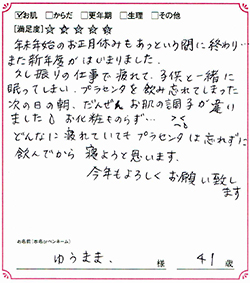 ☑お肌 □からだ □更年期 □生理 □その他
[満足度] ☆ ☆ ☆ ☆ ☆
年末年始のお正月休みもあっという間に終わり…
また新年度がはじまりました。
久し振りの仕事で疲れて、子供と一緒に
眠ってしまい、プラセンタを飲み忘れてしまった
次の日の朝、だんぜんお肌の調子が違い
ました💧 お化粧ものらず…
つくつも
どんなに疲れていてもプラセンタは忘れずに
飲んでから寝ようと思います。
今年もよろしくお願い致し
ます
お名前(本名orペンネーム)
ゆうまま. 様 41 歳